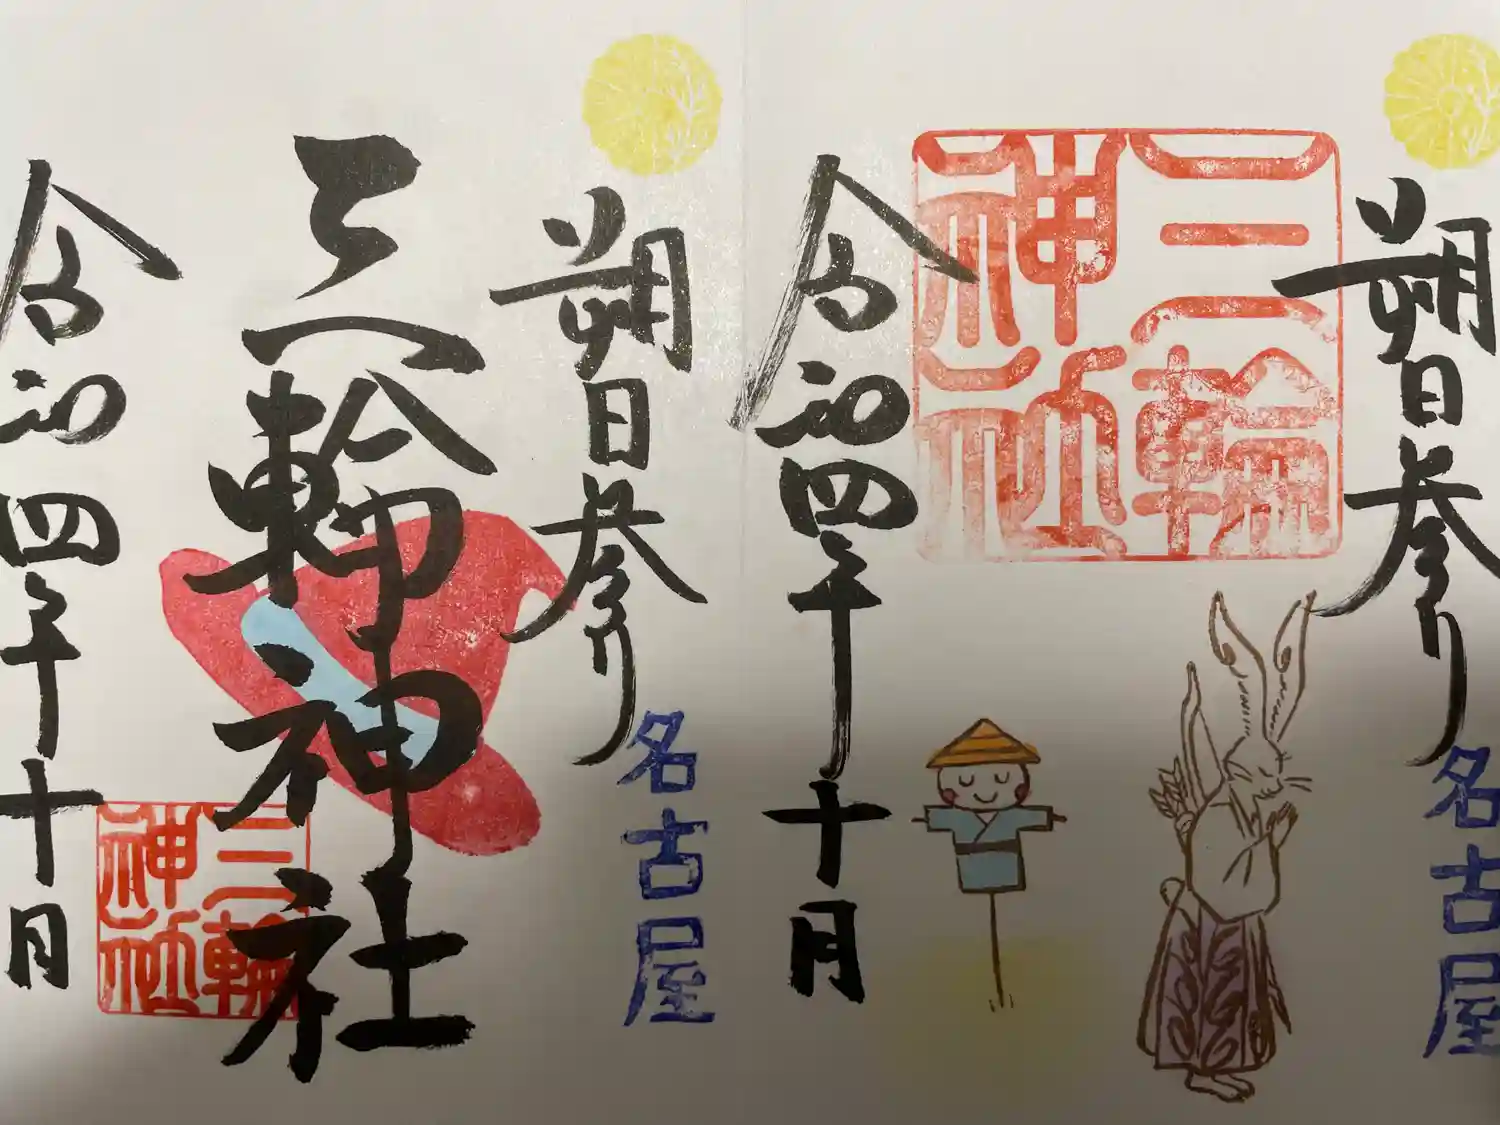 朔日参り
名古屋
三輪神社
三輪神社
令和四年十月
朔日参り
名古屋
三輪神社
令和四年十月